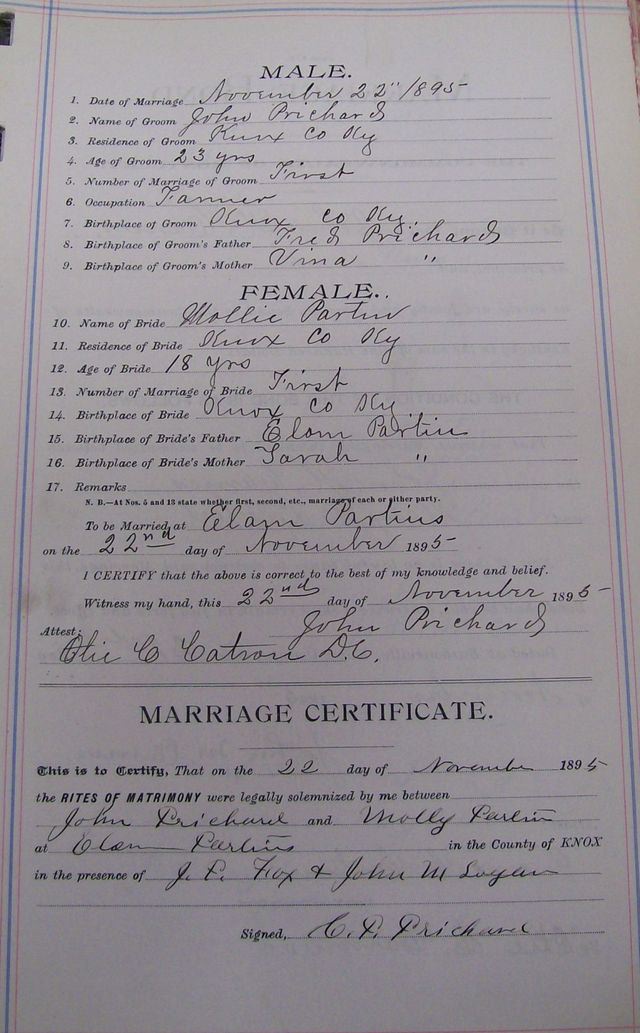 MALE.
1. Date of Marriage November 22" 1895
2. Name of Groom John Prichard
3. Residence of Groom Knox Co Ky
4. Age of Groom 23 yrs
5. Number of Marriage of Groom First
6. Occupation Farmer
7. Birthplace of Groom Knox Co Ky.
8. Birthplace of Groom's Father Fred Prichard
9. Birthplace of Groom's Mother Vina "
FEMALE.
10. Name of Bride Mollie Partin
11. Residence of Bride Knox Co Ky
12. Age of Bride 18 yrs
13. Number of Marriage of Bride First
14. Birthplace of Bride Knox Co Ky.
15. Birthplace of Bride's Father Elam Partin
16. Birthplace of Bride's Mother Sarah "
17. Remarks
N. B.—At Nos. 5 and 13 state whether first, second, etc., marriage of each or either party.
To be Married at Elam Partins
on the 22nd day of November 1895
I CERTIFY that the above is correct to the best of my knowledge and belief.
Witness my hand, this 22nd day of November 1895
John Prichard
Attest:
Olie C Catron D.C.
MARRIAGE CERTIFICATE.
This is to Certify, That on the 22 day of November 1895
the RITES OF MATRIMONY were legally solemnized by me between
John Prichard and Molly Partin
at Elam Partins in the County of KNOX
in the presence of J. P. Fox & John M Logan
Signed, C. P. Prichard